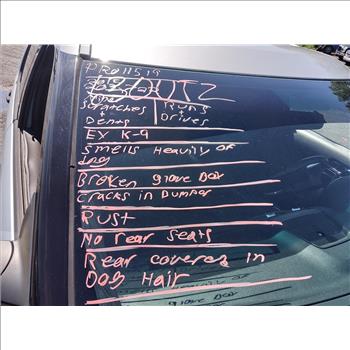 PRO11519
Scratches + Dents
Runs Drives
EX K-9
Smells Heavily of
Dog
Broken glove Box
Cracks in Bumper
Rust
No rear seats
Rear covered in
Dog Hair